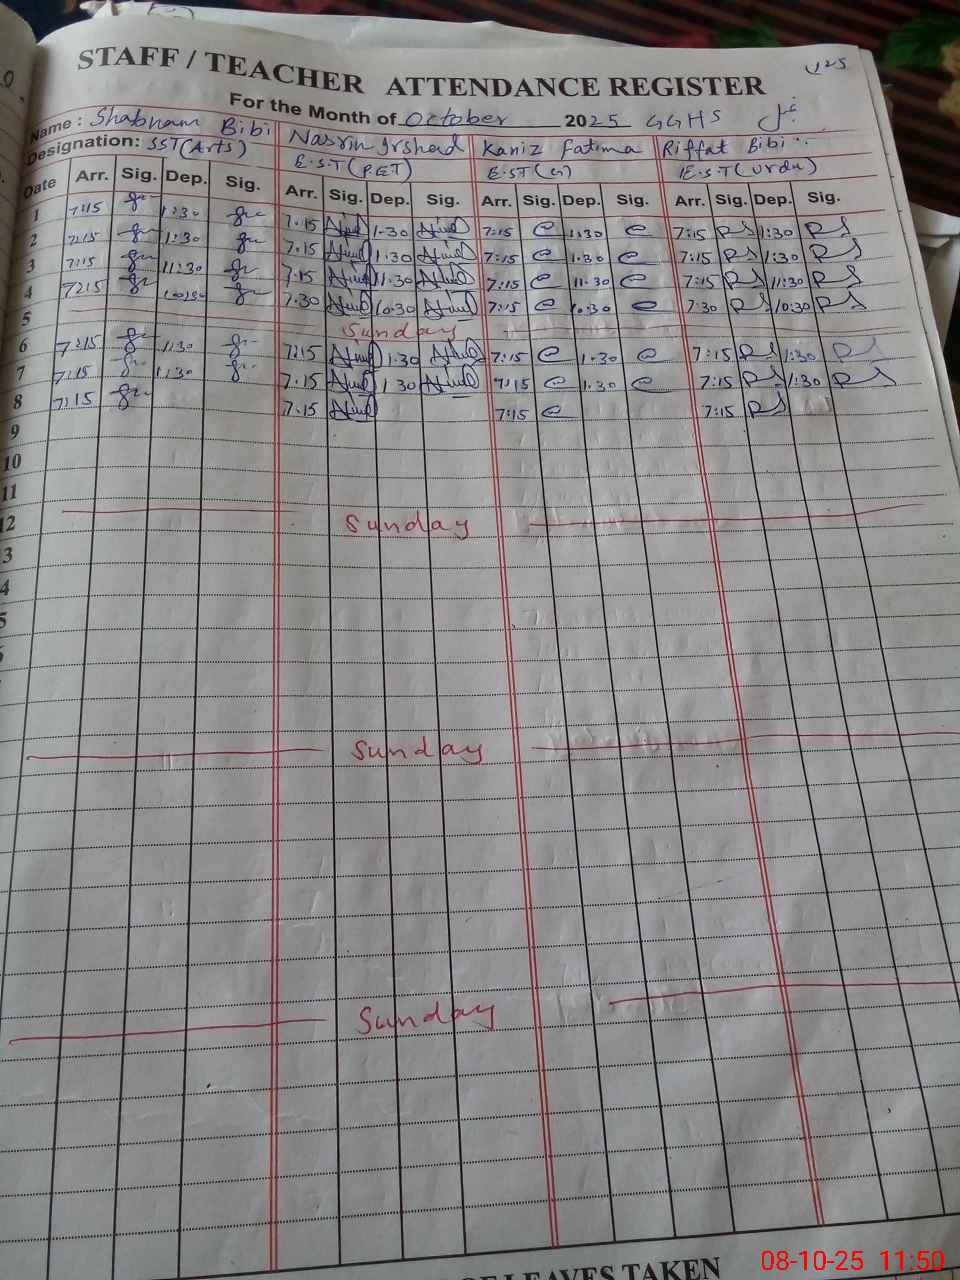 STAFF / TEACHER ATTENDANCE REGISTER
For the Month of October 2025 GGHS
Name : Shabnam Bibi Nasrin Irshad Kaniz Fatima Riffat Bibi
Designation: SST (Arts) E.S.T (PET) E.ST (G) E.S.T (Urdu)
Date Arr. Sig. Dep. Sig. Arr. Sig. Dep. Sig. Arr. Sig. Dep. Sig. Arr. Sig. Dep. Sig.
1 7:15 1:30 7:15 1:30 7:15 1:30 7:15 1:30
2 7:15 1:30 7:15 1:30 7:15 1:30 7:15 1:30
3 7:15 11:30 7:15 11:30 7:15 11:30 7:15 11:30
4 7:15 7:30 10:30 7:15 10:30 7:30 10:30
5 Sunday
6 7:15 1:30 7:15 1:30 7:15 1:30 7:15 1:30
7 7:15 1:30 7:15 1:30 7:15 1:30 7:15 1:30
8 7:15 7:15 7:15 7:15
9
10
11
12 Sunday
3
4
5
Sunday
Sunday
LEAVES TAKEN
08-10-25 11:50